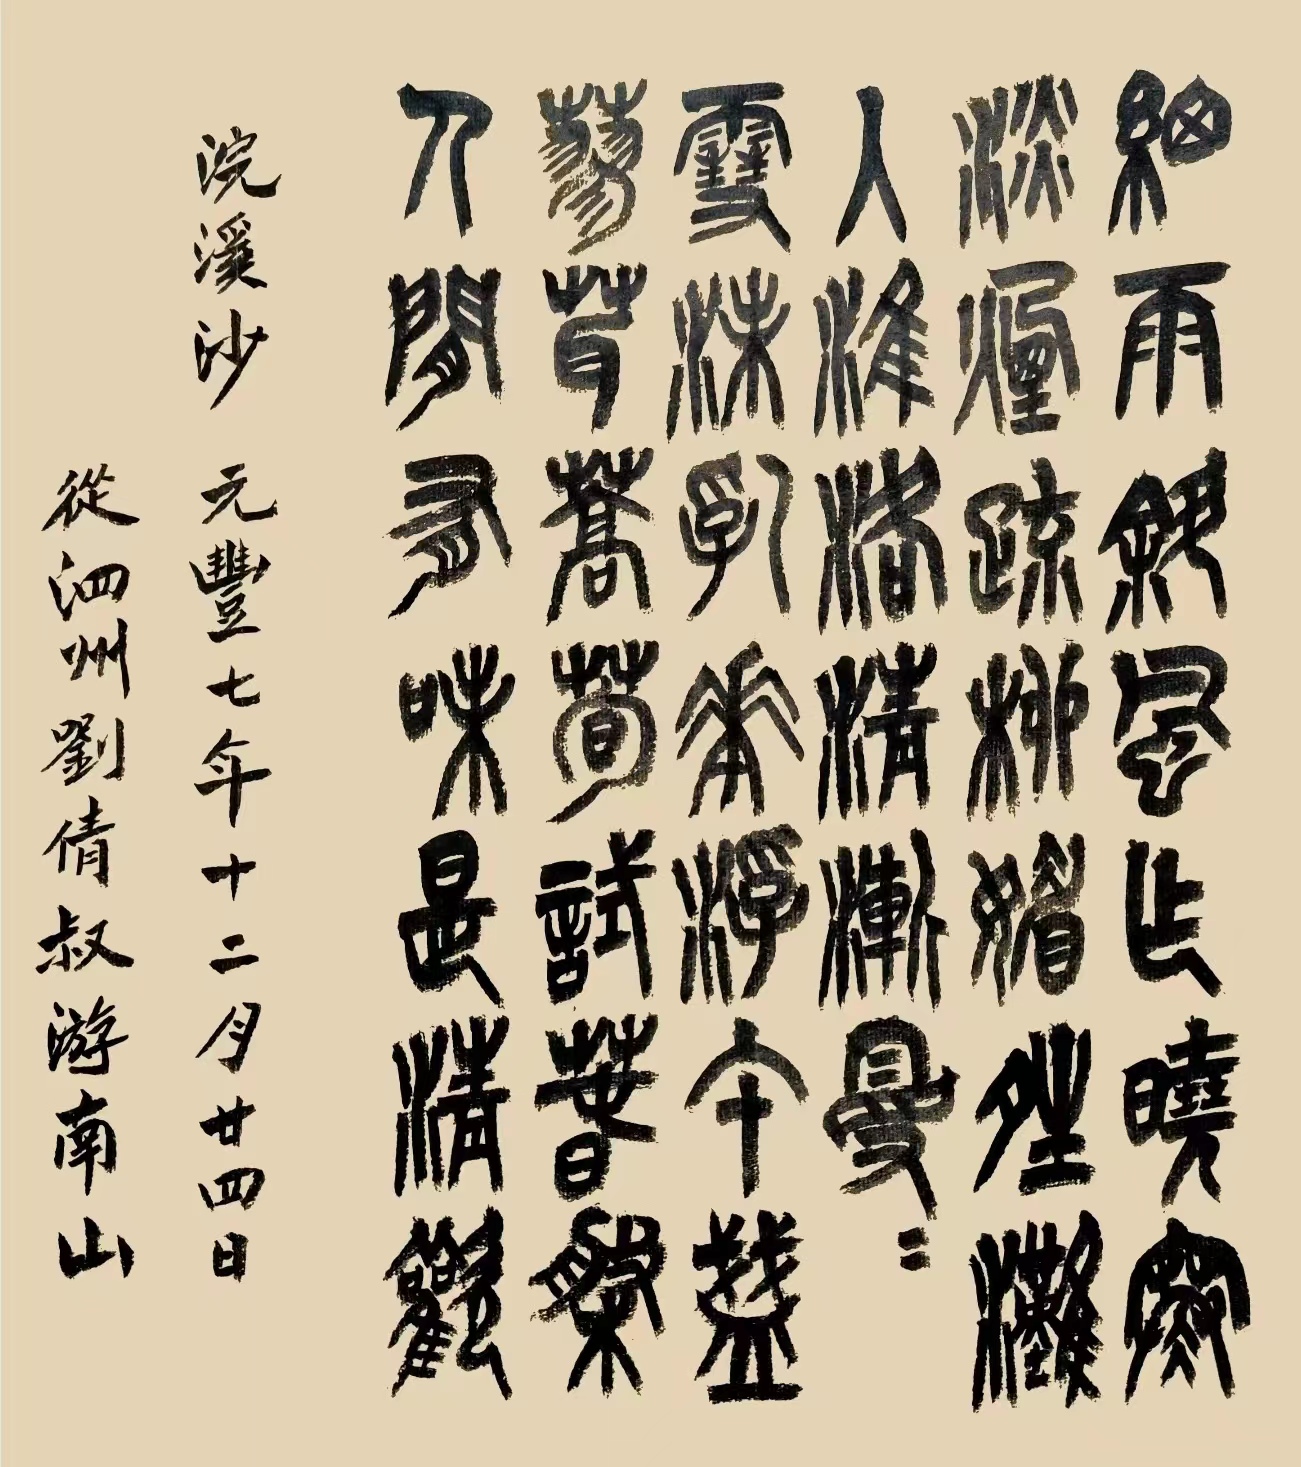 細雨斜風作曉寒
淡煙疏柳媚晴灘
人淮洛清漸曼〻
雪沫乳花浮午盞
蓼茸蒿筍試春盤
人間有味是清歡
浣溪沙 元豐七年十二月廿四日
從泗州劉倩叔游南山